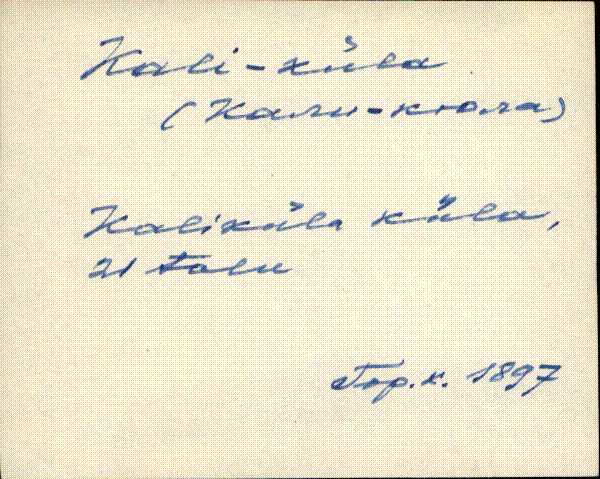 Kali-küla
(Кали-кюла)
Kaliküla küla,
21 talu
Top.k. 1897